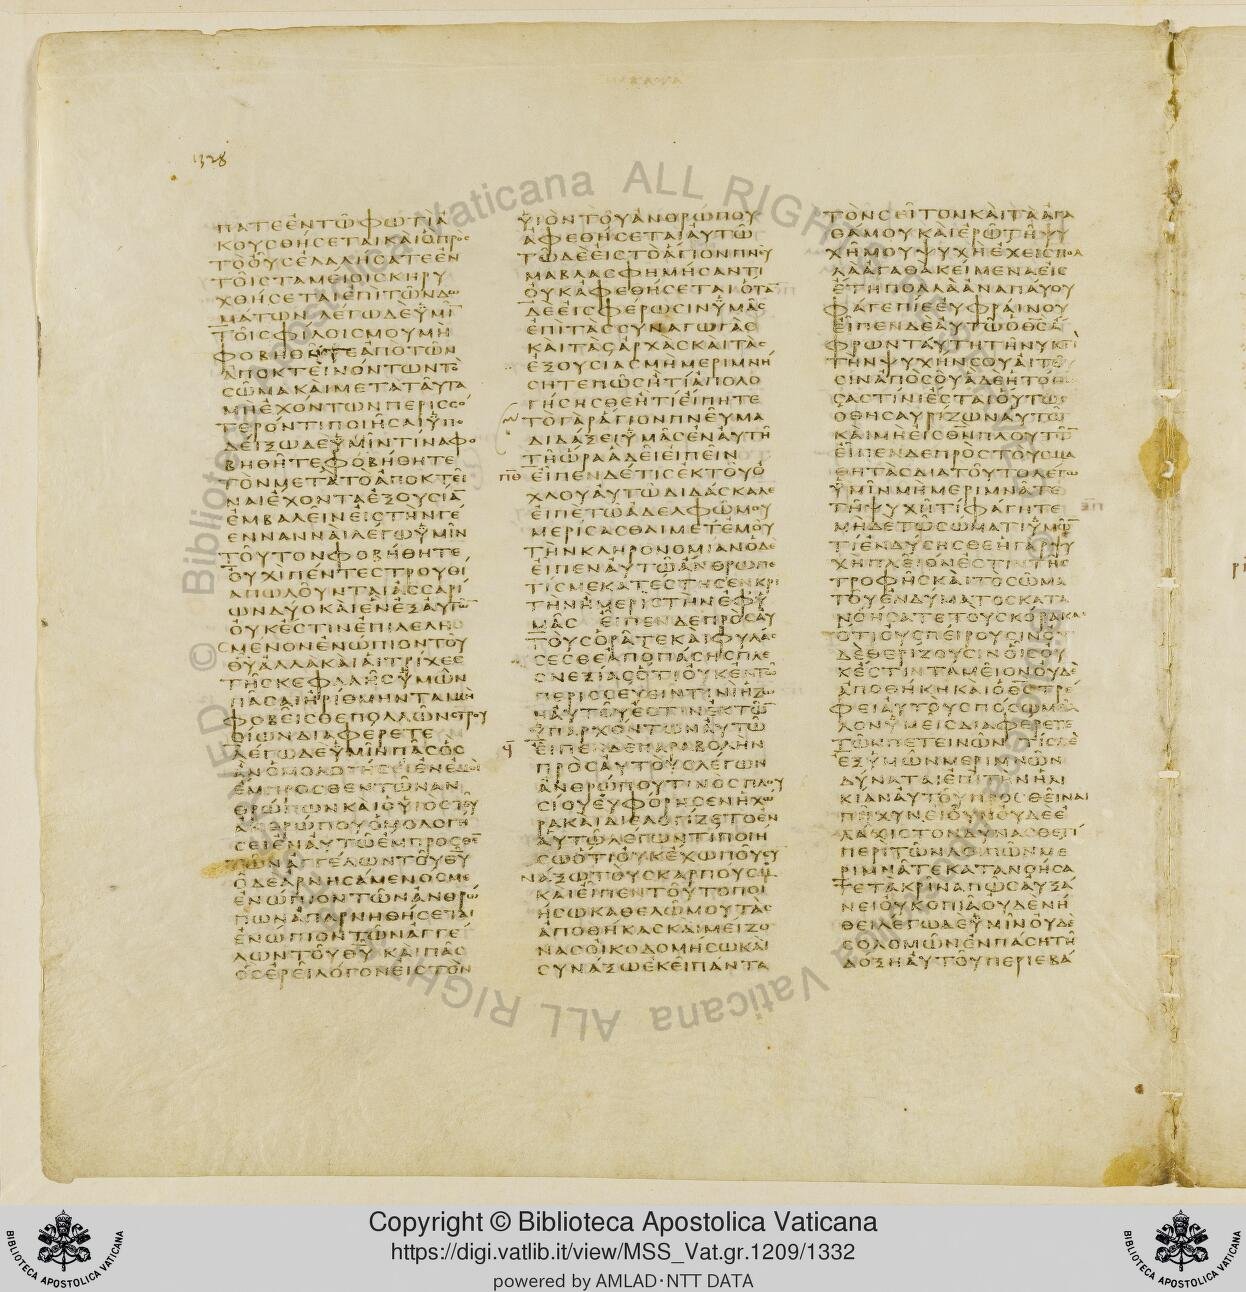 1328
ΠΑΤΕΕΝΤΩΦΩΤΙΑ
ΚΟΥΣΘΗΣΕΤΑΙΚΑΙΟΠΡΟΣ
ΤΟΟΥΣΕΛΑΛΗΣΑΤΕΕΝ
ΤΟΙΣΤΑΜΕΙΟΙΣΚΗΡΥ
ΧΘΗΣΕΤΑΙΕΠΙΤΩΝΔΩ
ΜΑΤΩΝ ΛΕΓΩΔΕΥΜΙ̅
ΤΟΙΣΦΙΛΟΙΣΜΟΥΜΗ
ΦΟΒΗΘΗΤΕΑΠΟΤΩΝ
ΑΠΟΚΤΕΙΝΟΝΤΩΝΤΟ
ΣΩΜΑΚΑΙΜΕΤΑΤΑΥΤΑ
ΜΗΕΧΟΝΤΩΝΠΕΡΙΣΣΟ
ΤΕΡΟΝΤΙΠΟΙΗΣΑΙΥΠΟ
ΔΕΙΞΩΔΕΥΜΙΝΤΙΝΑΦΟ
ΒΗΘΗΤΕΦΟΒΗΘΗΤΕ
ΤΟΝΜΕΤΑΤΟΑΠΟΚΤΕΙ
ΝΑΙΕΧΟΝΤΑΕΞΟΥΣΙΑ̅
ΕΜΒΑΛΕΙΝΕΙΣΤΗΝΓΕ
ΕΝΝΑΝΝΑΙΛΕΓΩΥΜΙΝ
ΤΟΥΤΟΝΦΟΒΗΘΗΤΕ
ΟΥΧΙΠΕΝΤΕΣΤΡΟΥΘΙ
ΑΠΩΛΟΥΝΤΑΙΑΣΣΑΡΙ
ΩΝΔΥΟΚΑΙΕΝΕΞΑΥΤΩ̅
ΟΥΚΕΣΤΙΝΕΠΙΛΕΛΗ
ΣΜΕΝΟΝΕΝΩΠΙΟΝΤΟΥ
Θ̅Υ̅ΑΛΛΑΚΑΙΑΙΤΡΙΧΕΣ
ΤΗΣΚΕΦΑΛΗΣΥΜΩΝ
ΠΑΣΑΙΗΡΙΘΜΗΝΤΑΙΜΗ
ΦΟΒΕΙΣΘΕΠΟΛΛΩΝΣΤΡΟΥ
ΘΙΩΝΔΙΑΦΕΡΕΤΕ
ΛΕΓΩΔΕΥΜΙΝΠΑΣΟΣ
ΑΝΟΜΟΛΟΓΗΣΕΙΕΝΕΜΟΙ
ΕΜΠΡΟΣΘΕΝΤΩΝΑΝ
ΘΡΩΠΩΝΚΑΙΟΥΙΟΣΤΟΥ
ΑΝΘΡΩΠΟΥΟΜΟΛΟΓΗ
ΣΕΙΕΝΑΥΤΩΕΜΠΡΟΣΘΕ̅
ΤΩΝΑΓΓΕΛΩΝΤΟΥΘ̅Υ̅
ΟΔΕΑΡΝΗΣΑΜΕΝΟΣΜΕ
ΕΝΩΠΙΟΝΤΩΝΑΝΘΡΩ
ΠΩΝΑΠΑΡΝΗΘΗΣΕΤΑΙ
ΕΝΩΠΙΟΝΤΩΝΑΓΓΕ
ΛΩΝΤΟΥΘ̅Υ̅ ΚΑΙΠΑΣ
ΟΣΕΡΕΙΛΟΓΟΝΕΙΣΤΟΝ
ΥΙΟΝΤΟΥΑΝΘΡΩΠΟΥ
ΑΦΕΘΗΣΕΤΑΙΑΥΤΩ
ΤΩΔΕΕΙΣΤΟΑΓΙΟΝΠΝ̅Υ̅
ΜΑΒΛΑΣΦΗΜΗΣΑΝΤΙ
ΟΥΚΑΦΕΘΗΣΕΤΑΙΟΤΑ̅
ΔΕΕΙΣΦΕΡΩΣΙΝΥΜΑΣ
ΕΠΙΤΑΣΣΥΝΑΓΩΓΑΣ
ΚΑΙΤΑΣΑΡΧΑΣΚΑΙΤΑΣ
ΕΞΟΥΣΙΑΣΜΗΜΕΡΙΜΝΗ
ΣΗΤΕΠΩΣΗΤΙΑΠΟΛΟ
ΓΗΣΗΣΘΕΗΤΙΕΙΠΗΤΕ
ΤΟΓΑΡΑΓΙΟΝΠΝΕΥΜΑ
ΔΙΔΑΞΕΙΥΜΑΣΕΝΑΥΤΗ
ΤΗΩΡΑΑΔΕΙΕΙΠΕΙΝ
Π̅Θ̅ ΕΙΠΕΝΔΕΤΙΣΕΚΤΟΥΟ
ΧΛΟΥΑΥΤΩΔΙΔΑΣΚΑΛΕ
ΕΙΠΕΤΩΑΔΕΛΦΩΜΟΥ
ΜΕΡΙΣΑΣΘΑΙΜΕΤΕΜΟΥ
ΤΗΝΚΛΗΡΟΝΟΜΙΑΝΟΔΕ
ΕΙΠΕΝΑΥΤΩΑΝΘΡΩΠΕ
ΤΙΣΜΕΚΑΤΕΣΤΗΣΕΝΚΡΙ
ΤΗΝΗΜΕΡΙΣΤΗΝΕΦΥ
ΜΑΣ ΕΙΠΕΝΔΕΠΡΟΣΑΥ
ΤΟΥΣΟΡΑΤΕΚΑΙΦΥΛΑΣ
ΣΕΣΘΕΑΠΟΠΑΣΗΣΠΛΕ
ΟΝΕΞΙΑΣΟΤΙΟΥΚΕΝΤΩ
ΠΕΡΙΣΣΕΥΕΙΝΤΙΝΙΗΖΩ
ΗΑΥΤΟΥΕΣΤΙΝΕΚΤΩ̅
ΥΠΑΡΧΟΝΤΩΝΑΥΤΩ
Ϙ̅ ΕΙΠΕΝΔΕΠΑΡΑΒΟΛΗΝ
ΠΡΟΣΑΥΤΟΥΣΛΕΓΩΝ
ΑΝΘΡΩΠΟΥΤΙΝΟΣΠΛΟΥ
ΣΙΟΥΕΥΦΟΡΗΣΕΝΗΧΩ
ΡΑΚΑΙΔΙΕΛΟΓΙΖΕΤΟΕΝ
ΑΥΤΩΛΕΓΩΝΤΙΠΟΙΗ
ΣΩΟΤΙΟΥΚΕΧΩΠΟΥΣΥ
ΝΑΞΩΤΟΥΣΚΑΡΠΟΥΣΜΟΥ
ΚΑΙΕΙΠΕΝΤΟΥΤΟΠΟΙ
ΗΣΩΚΑΘΕΛΩΜΟΥΤΑΣ
ΑΠΟΘΗΚΑΣΚΑΙΜΕΙΖΟ
ΝΑΣΟΙΚΟΔΟΜΗΣΩΚΑΙ
ΣΥΝΑΞΩΕΚΕΙΠΑΝΤΑ
ΤΟΝΣΕΙΤΟΝΚΑΙΤΑΑΓΑ
ΘΑΜΟΥΚΑΙΕΡΩΤΗΨΥ
ΧΗΜΟΥΨΥΧΗΕΧΕΙΣΠΟΛ
ΛΑΑΓΑΘΑΚΕΙΜΕΝΑΕΙΣ
ΕΤΗΠΟΛΛΑΑΝΑΠΑΥΟΥ
ΦΑΓΕΠΙΕΕΥΦΡΑΙΝΟΥ
ΕΙΠΕΝΔΕΑΥΤΩΟΘ̅Σ̅Α
ΦΡΩΝΤΑΥΤΗΤΗΝΥΚΤΙ
ΤΗΝΨΥΧΗΝΣΟΥΑΙΤΟΥ
ΣΙΝΑΠΟΣΟΥΑΔΕΗΤΟΙ
ΜΑΣΑΣΤΙΝΙΕΣΤΑΙΟΥΤΩΣ
ΟΘΗΣΑΥΡΙΖΩΝΑΥΤΩ
ΚΑΙΜΗΕΙΣΘ̅Ν̅ΠΛΟΥΤΩ̅
ΕΙΠΕΝΔΕΠΡΟΣΤΟΥΣΜΑ
ΘΗΤΑΣΔΙΑΤΟΥΤΟΛΕΓΩ
ΥΜΙΝΜΗΜΕΡΙΜΝΑΤΕ
ΤΗΨΥΧΗΤΙΦΑΓΗΤΕ
ΜΗΔΕΤΩΣΩΜΑΤΙΥΜΩ̅
ΤΙΕΝΔΥΣΗΣΘΕΗΓΑΡΨΥ
ΧΗΠΛΕΙΟΝΕΣΤΙΝΤΗΣ
ΤΡΟΦΗΣΚΑΙΤΟΣΩΜΑ
ΤΟΥΕΝΔΥΜΑΤΟΣΚΑΤΑ
ΝΟΗΣΑΤΕΤΟΥΣΚΟΡΑΚΑΣ
ΟΤΙΟΥΣΠΕΙΡΟΥΣΙΝΟΥ
ΔΕΘΕΡΙΖΟΥΣΙΝΟΙΣΟΥ
ΚΕΣΤΙΝΤΑΜΕΙΟΝΟΥΔΕ
ΑΠΟΘΗΚΗΚΑΙΟΘ̅Σ̅ΤΡΕ
ΦΕΙΑΥΤΟΥΣΠΟΣΩΜΑΛ
ΛΟΝΥΜΕΙΣΔΙΑΦΕΡΕΤΕ
ΤΩΝΠΕΤΕΙΝΩΝ ΤΙΣΔΕ
ΕΞΥΜΩΝΜΕΡΙΜΝΩΝ
ΔΥΝΑΤΑΙΕΠΙΤΗΝΗΛΙ
ΚΙΑΝΑΥΤΟΥΠΡΟΣΘΕΙΝΑΙ
ΠΗΧΥΝΕΙΟΥΝΟΥΔΕΕ
ΛΑΧΙΣΤΟΝΔΥΝΑΣΘΕΤΙ
ΠΕΡΙΤΩΝΛΟΙΠΩΝΜΕ
ΡΙΜΝΑΤΕΚΑΤΑΝΟΗΣΑ
ΤΕΤΑΚΡΙΝΑΠΩΣΑΥΞΑ
ΝΕΙΟΥΚΟΠΙΑΟΥΔΕΝΗ
ΘΕΙΛΕΓΩΔΕΥΜΙΝΟΥΔΕ
ΣΟΛΟΜΩΝΕΝΠΑΣΗΤΗ
ΔΟΞΗΑΥΤΟΥΠΕΡΙΕΒΑ
Copyright © Biblioteca Apostolica Vaticana
https://digi.vatlib.it/view/MSS_Vat.gr.1209/1332
powered by AMLAD·NTT DATA